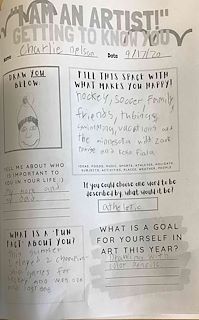 "I AM AN ARTIST!"
GETTING TO KNOW YOU
Name Charlie Nelson Date 9/17/20
DRAW YOU
BELOW:
FILL THIS SPACE WITH
WHAT MAKES YOU HAPPY!
hockey, Soccer, Family,
friends, tubing,
swimming, vacations, at
the Minnesota wild
TELL ME ABOUT WHO
IS IMPORTANT TO
YOU IN YOUR LIFE:)
my mom and
my dad
IDEAS: FOODS, MUSIC, SPORTS, ATHLETES, HOLIDAYS,
SUBJECTS, ACTIVITIES, PLACES, WEATHER, PEOPLE!
If you could choose one word to be
described by, what would it be?
athletic
WHAT IS A "FUN
FACT" ABOUT YOU?
This summer
I played 2 champion-
ship games for
hockey and won one
and lost one
WHAT IS A GOAL
FOR YOURSELF IN
ART THIS YEAR?
Drawing with
color pencils